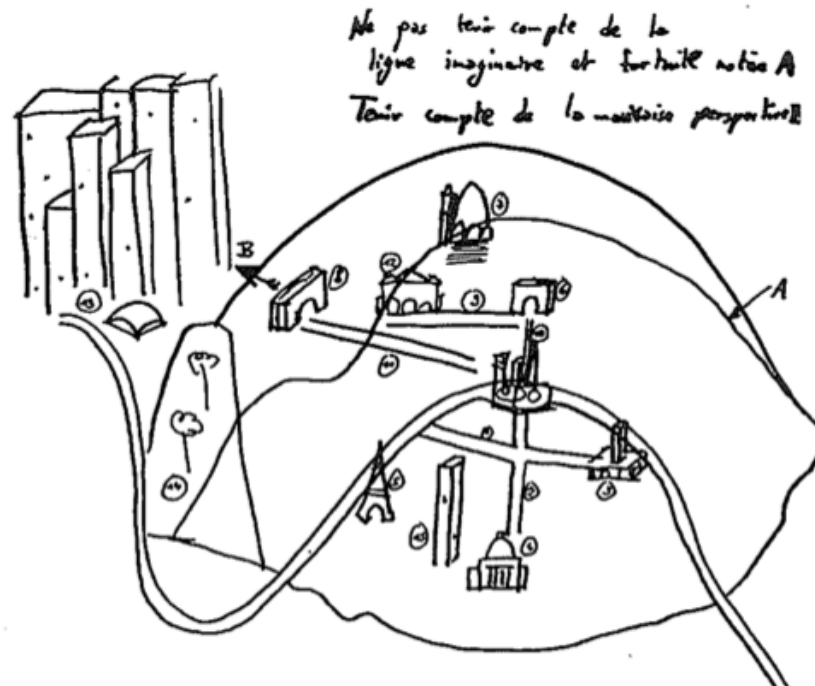 Ne pas tenir compte de la
ligne imaginaire et fortuite notée A
Tenir compte de la mauvaise perspective
B
7
8
12
6
9
A
13
11
10
5
3
14
15
2
1